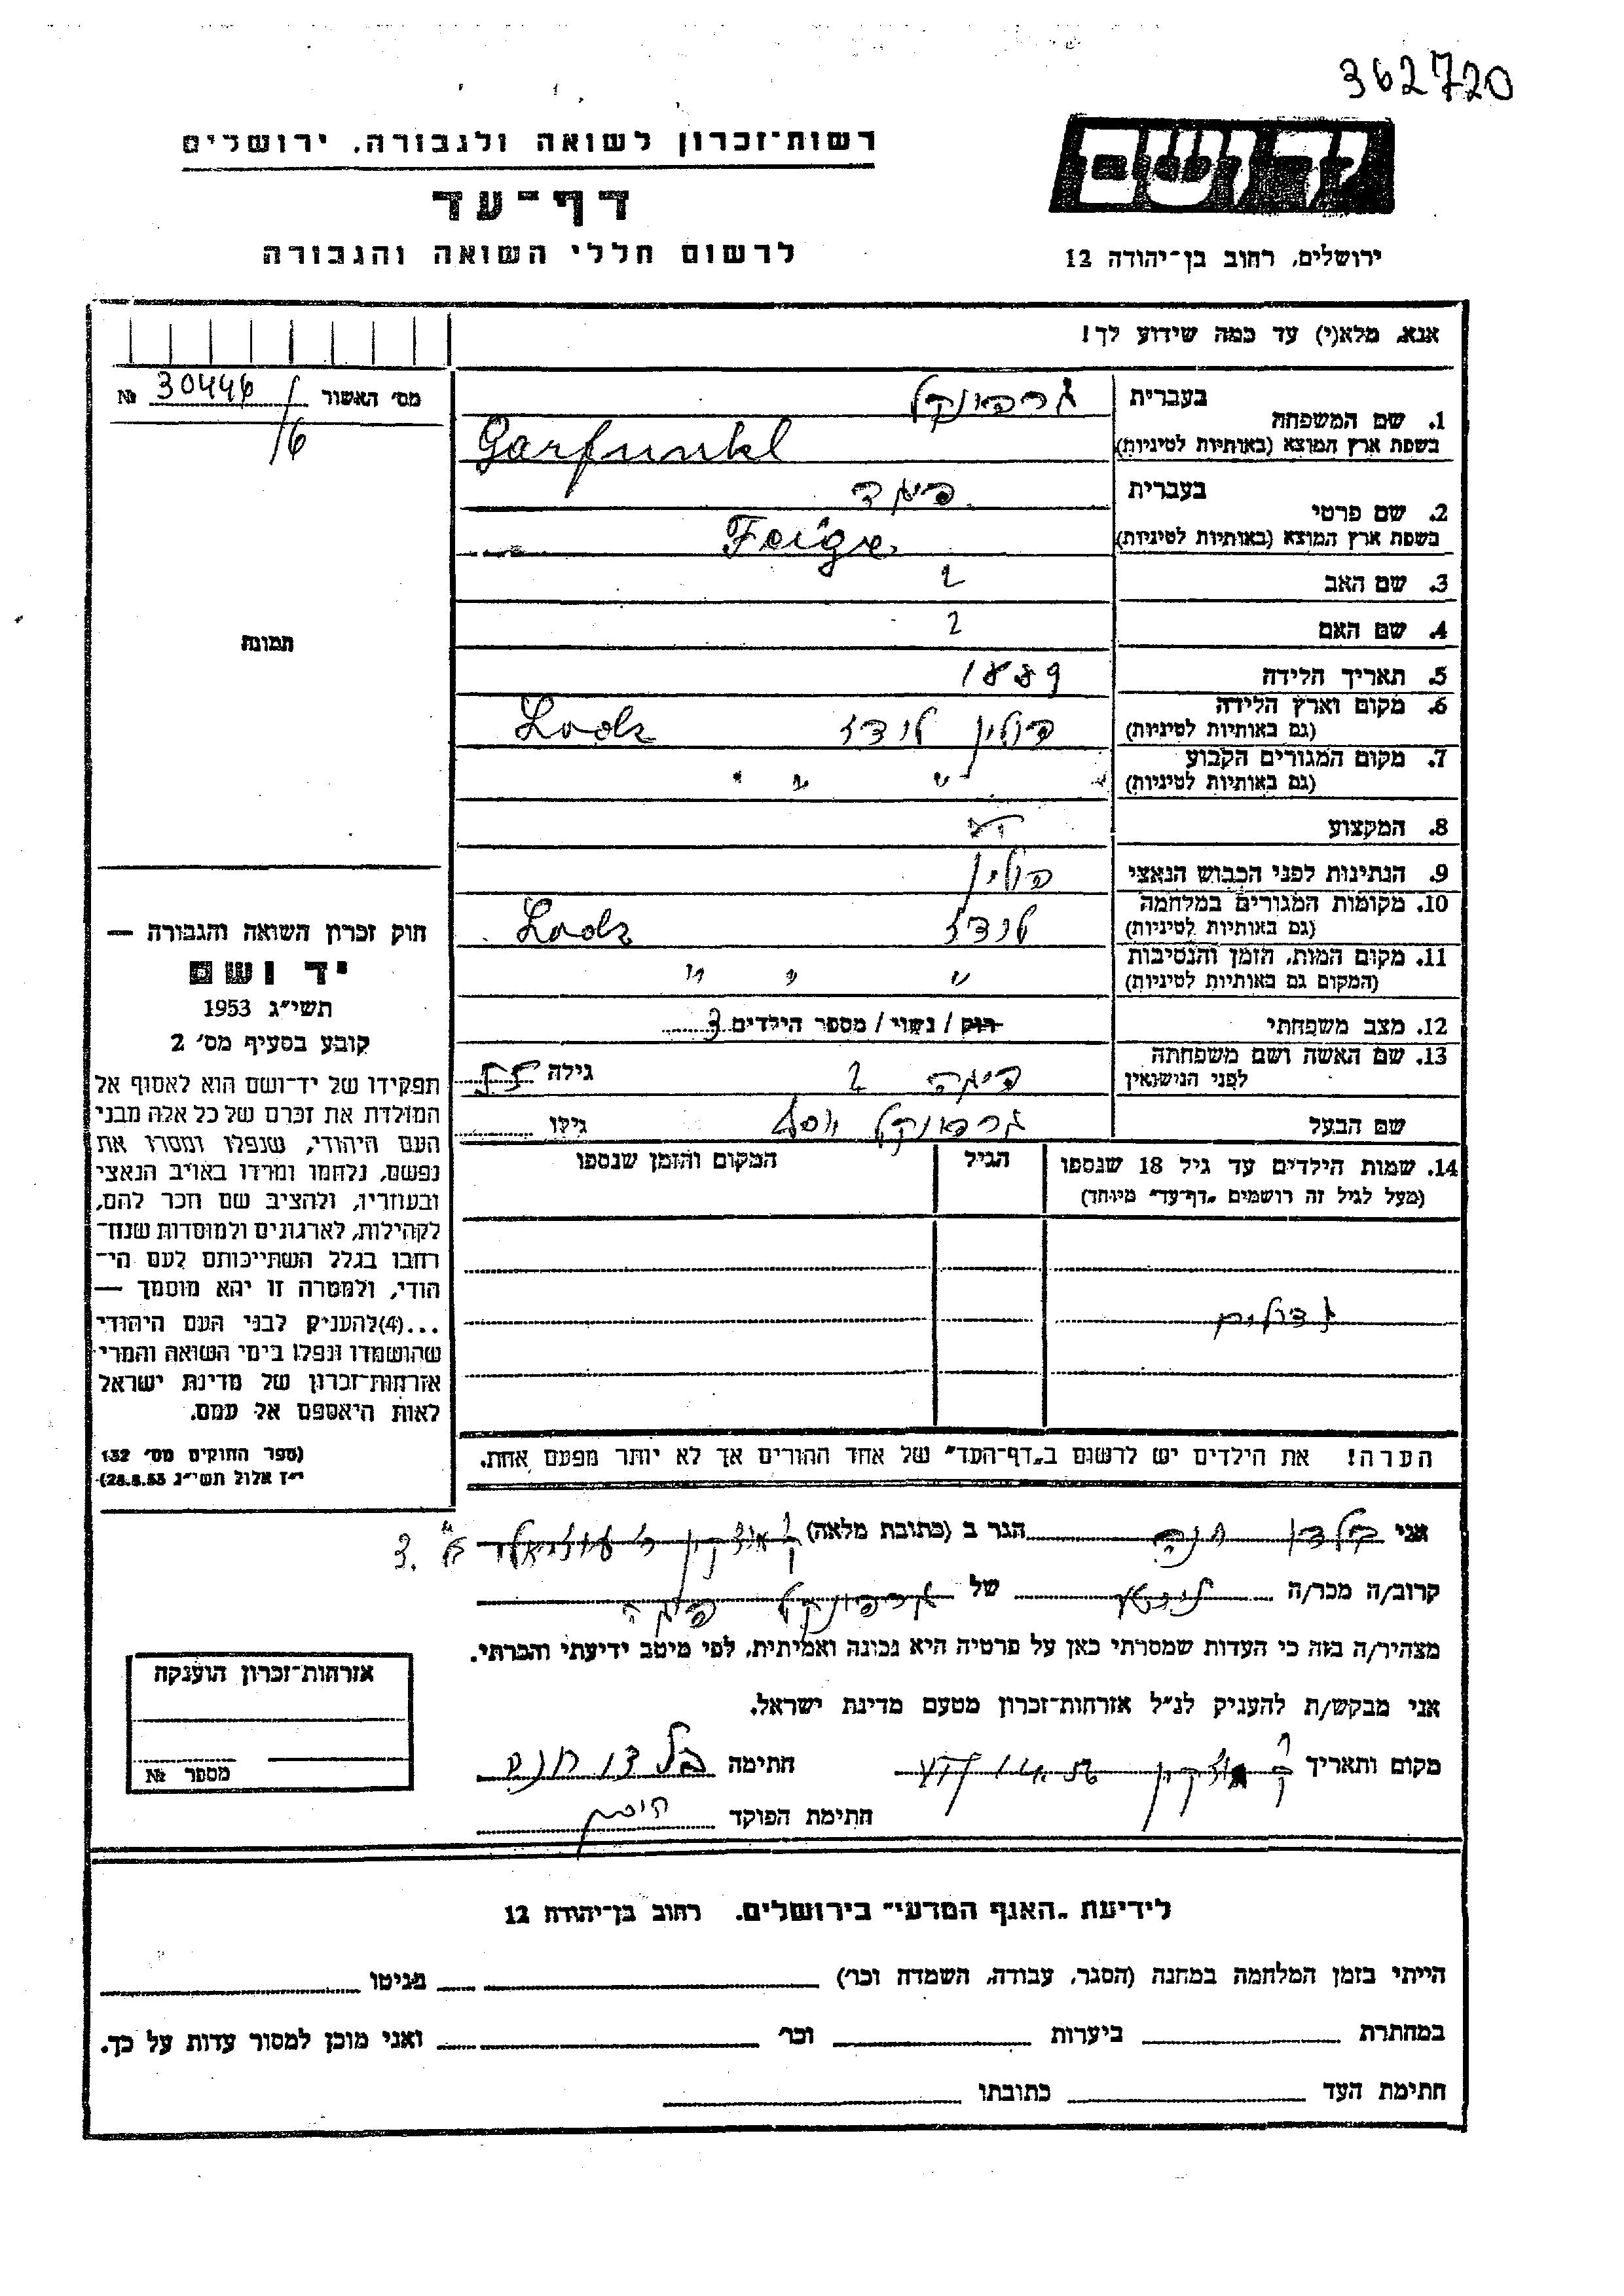 362720
יד ושם
ירושלים, רחוב בן־יהודה 12
רשות־זכרון לשואה ולגבורה, ירושלים
דף־עד
לרשום חללי השואה והגבורה
אנא, מלא(י) עד כמה שידוע לך!
מס׳ האשור 30446/16 №
1. שם המשפחה בעברית גרפונקל
בשפת ארץ המוצא (באותיות לטיניות) Garfunkl
2. שם פרטי בעברית
בשפת ארץ המוצא (באותיות לטיניות) Feige
3. שם האב
4. שם האם
5. תאריך הלידה 1889
6. מקום וארץ הלידה (גם באותיות לטיניות) פולין לודז Lodz
7. מקום המגורים הקבוע (גם באותיות לטיניות) " " " "
8. המקצוע
9. הנתינות לפני הכבוש הנאצי פולין
10. מקומות המגורים במלחמה (גם באותיות לטיניות) לודז Lodz
11. מקום המות, הזמן והנסיבות (המקום גם באותיות לטיניות) " " "
12. מצב משפחתי רוק / נשוי / מספר הילדים 3
13. שם האשה ושם משפחתה לפני הנישואין פיגה גילה 55
שם הבעל גרפונקל גילו
14. שמות הילדים עד גיל 18 שנספו הגיל המקום והזמן שנספו
(מעל לגיל זה רושמים „דף־עד״ מיוחד)
גדולים
הערה! את הילדים יש לרשום ב„דף־העד״ של אחד ההורים אך לא יותר מפעם אחת.
תמונה
חוק זכרון השואה והגבורה —
יד ושם
תשי״ג 1953
קובע בסעיף מס׳ 2
תפקידו של יד־ושם הוא לאסוף אל
המולדת את זכרם של כל אלה מבני
העם היהודי, שנפלו ומסרו את
נפשם, נלחמו ומרדו באויב הנאצי
ובעוזריו, ולהציב שם וזכר להם,
לקהילות, לארגונים ולמוסדות שנח־
רחבו בגלל השתייכותם לעם הי־
הודי, ולמטרה זו יהא מוסמך —
...(4)להעניק לבני העם היהודי
שהושמדו ונפלו בימי השואה והמרי
אזרחות־זכרון של מדינת ישראל
לאות היאספם אל עמם.
(ספר החוקים מס׳ 132
י״ז אלול תשי״ג 28.8.53)
אני בלדו חנה הגר ב (כתובת מלאה) ק מוצקין 3
קרוב/ה מכר/ה של גרפונקל פיגה
מצהיר/ה בזה כי העדות שמסרתי כאן על פרטיה היא נכונה ואמיתית, לפי מיטב ידיעתי והכרתי.
אני מבקש/ת להעניק לנ״ל אזרחות־זכרון מטעם מדינת ישראל.
מקום ותאריך ק מוצקין חתימה בלדו חנה
חתימת הפוקד
אזרחות־זכרון הוענקה
מספר №
לידיעת „האגף המדעי״ בירושלים, רחוב בן־יהודה 12
הייתי בזמן המלחמה במחנה (הסגר, עבודה, השמדה וכר׳) בגיטו
במחתרת ביערות וכר׳ ואני מוכן למסור עדות על כך.
חתימת העד כתובתו